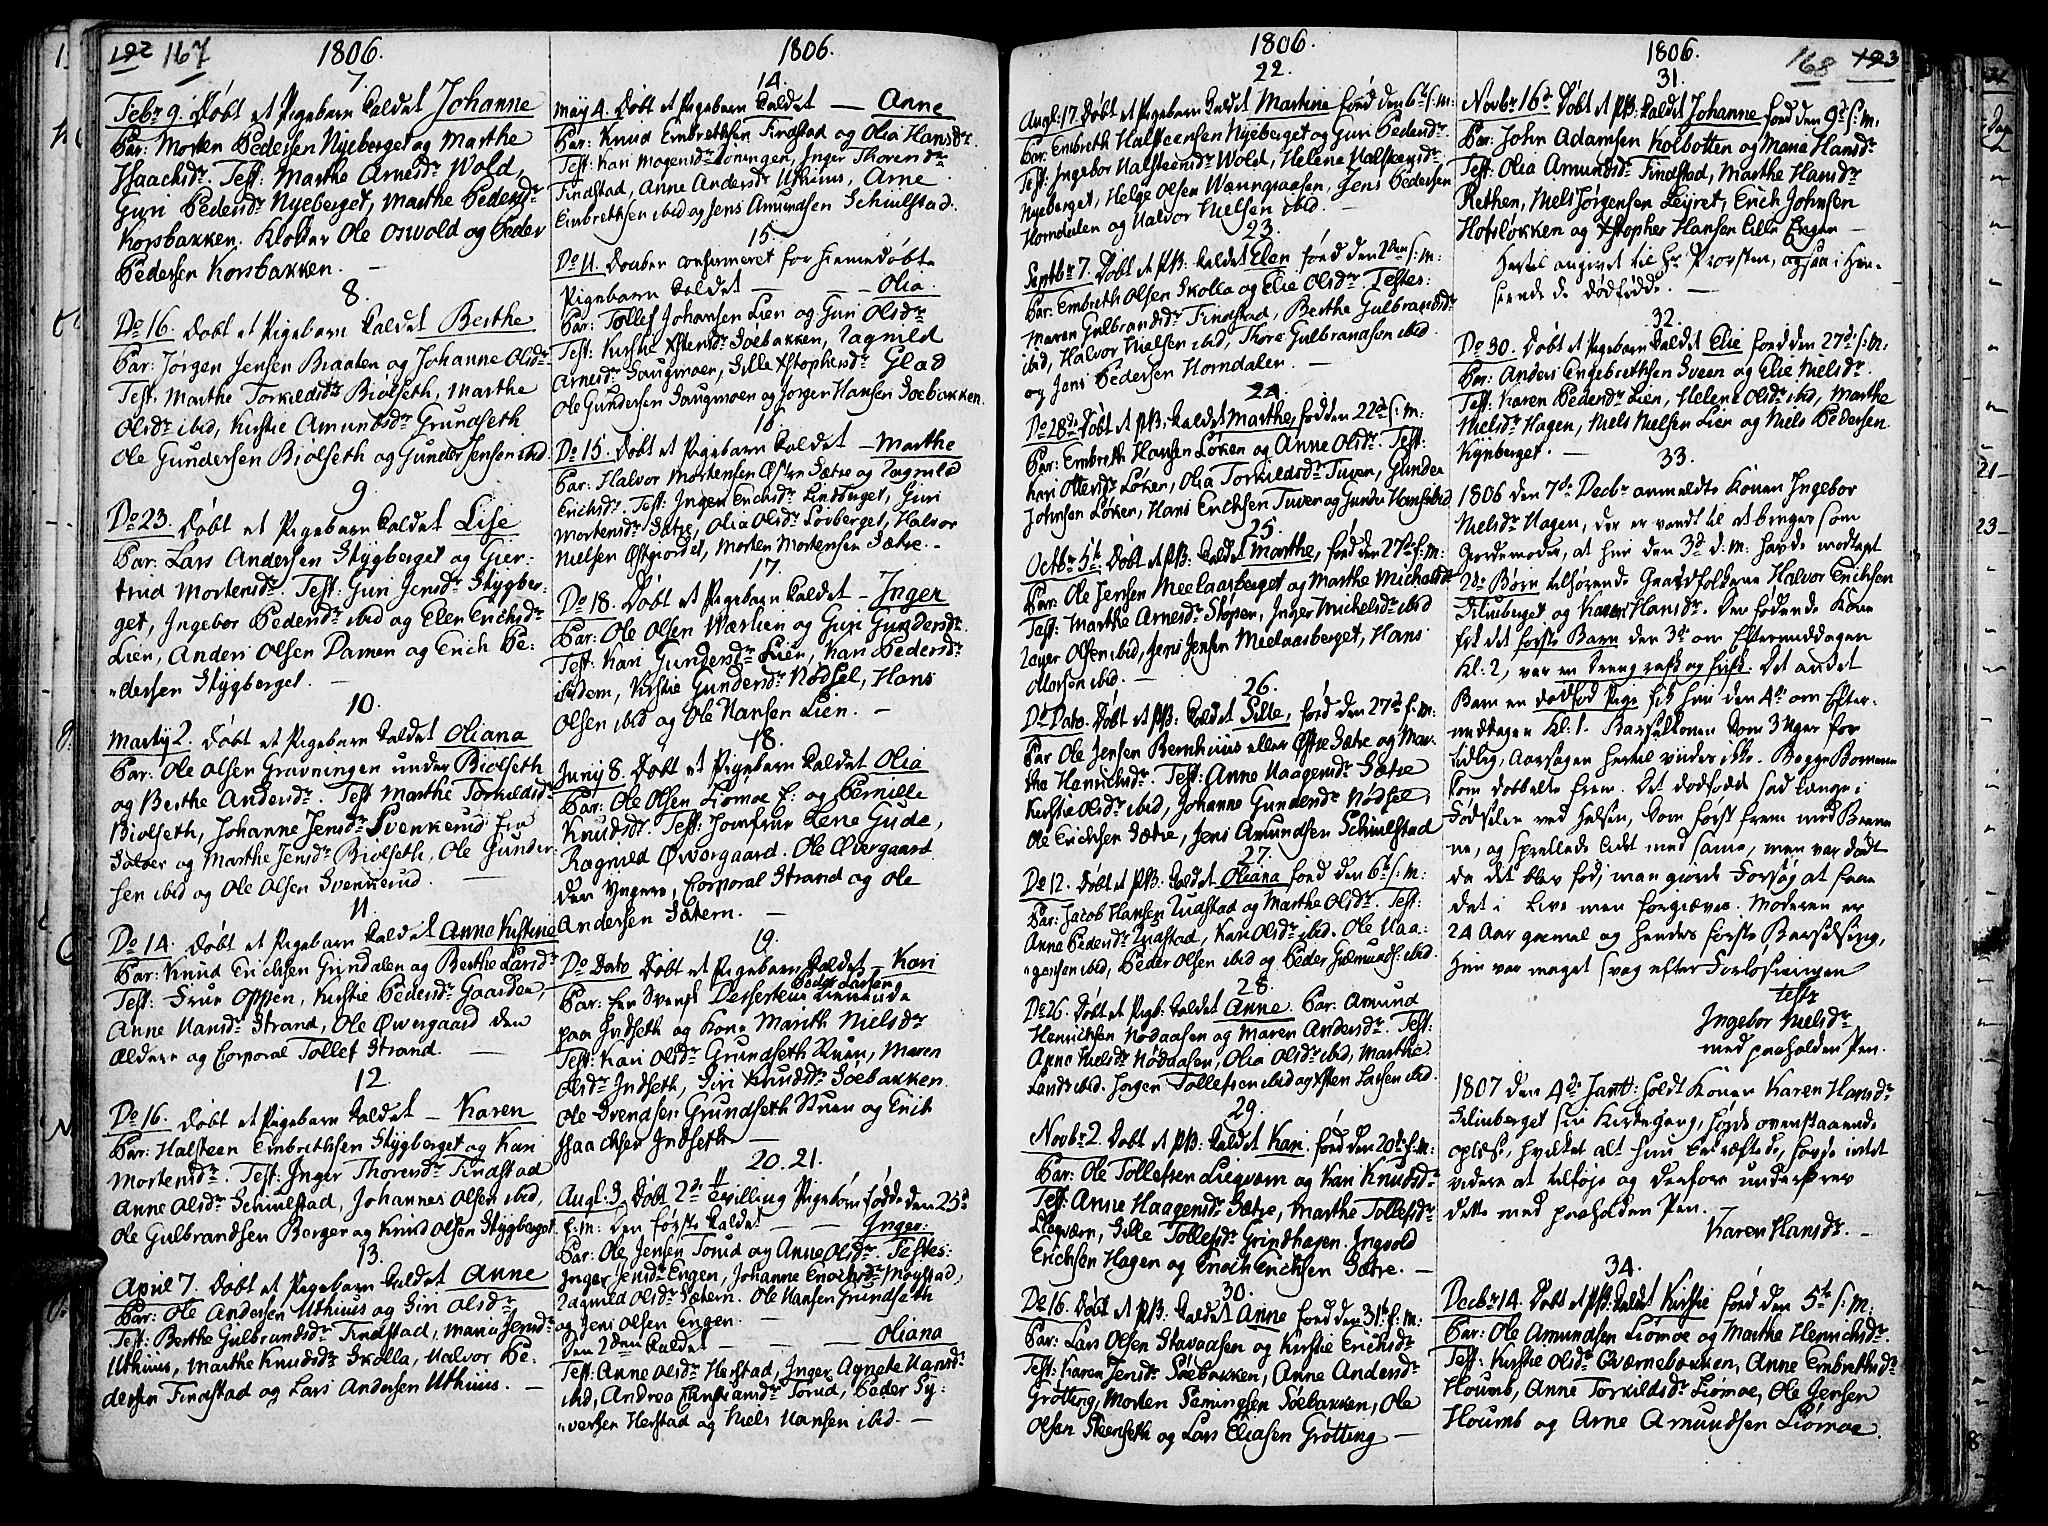 192 167
1806.
7.
Febr 9. Døbt et Pigebarn kaldet Johanne
Par: Morten Pedersen Nyeberget og Marthe
Isaachsdr. Test: Marthe Arnesdr Wold,
Guri Pedersdr Nyeberget, Marthe Pedersdr
Korsbakken. Klokker Ole Oswold og Peder
Pedersen Korsbakken. —
8.
Do 16. Døbt et Pigebarn kaldet Berthe
Par: Jørgen Jensen Braaten og Johanne Olsdr
Test. Marthe Torkildsdr Biølseth, Marthe
Olsdr ibid, Kirstie Amundsdr Grundseth
Ole Gundersen Biølseth og Gunder Jensen ibid
9.
Do 23. Døbt et Pigebarn kaldet Lise
Par: Lars Andersen Stygberget og Gier-
trud Mortensdr. Test: Guri Jensdr Stygber-
get, Ingebor Pedersdr ibid og Elen Erichsdr
Lien, Anders Olsen Damen og Erich Pe-
dersen Stygberget. —
10.
Marty 2. Døbt et Pigebarn kaldet Oliana
Par: Ole Olsen Gravningen under Biølseth
og Berthe Andersdr. Test Marthe Torkildsdr
Biølseth, Johanne Jensdr Svenkerud
og Marthe Jensdr Biølseth, Ole Gunder
sen ibid og Ole Olsen Svenkerud. —
11.
Do 14. Døbt et Pigebarn kaldet Anne Kirstine
Par: Knud Erichsen Grindalen og Berthe Larsdr
Test: Frue Oppen, Kirstie Pedersdr Gaarder,
Anne Hansdr Strand, Ole Øvergaard den
ældere og Corporal Tollef Strand. —
12.
Do 16. Døbt et Pigebarn kaldet — Karen
Par: Halsteen Embrethsen Stygberget og Kari
Mortensdr. Test: Inger Thoresdr Findstad
Anne Olsdr Schiulstad, Johannes Olsen ibid,
Ole Gulbrandsen Berger og Knud Olsen Stygberget.
13.
April 7. Døbt et Pigebarn kaldet Anne
Par: Ole Andersen Uthuus og Siri Olsdr
Test: Berthe Gulbrandsdr Findstad, Maria Jensdr
Uthuus, Marthe Knudsdr Skolla, Halvor Pe-
dersen Findstad og Lars Andersen Uthuus. —
1806.
14.
May 4. Døbt et Pigebarn kaldet — Anne
Par: Knud Embrethsen Findstad og Olia Hansdr.
Test: Kari Mogensdr Loningen, Inger Thoresdr
Findstad, Anne Andersdr Uthuus, Arne
Embrethsen ibid og Jens Amundsen Schiulstad.
15.
Do 11. Daaben confirmeret for hiemmedøbte
Pigebarn kaldet — — — Olia.
Par: Tollef Johansen Lien og Guri Olsdr
Test: Kirstie Xstensdr Søebakken, Ragnild
Arnesdr Saugmoen, Sille Xstophersdr Glad
Ole Gundersen Saugmoen og Jørgen Hansen Søebakken.
16.
Do 15. Døbt et Pigebarn kaldet — Marthe
Par: Halvor Mortensen Østre Sætre og Ragnild
Erichsdr. Test: Inger Erichsdr Lindberget, Guri
Mortensdr Sætre, Olia Olsdr Løvberget, Halvor
Nielsen Østgiordet, Morten Mortensen Sætre. —
17.
Do 18. Døbt et Pigebarn kaldet — Inger
Par: Ole Olsen Wærlien og Guri Gundersdr.
Test: Kari Gundersdr Lien, Kari Pedersdr
ibidem, Kirstie Gundersdr Nødsel, Hans
Olsen ibid og Ole Hansen Lien. —
18.
Juny 8. Døbt et Pigebarn kaldet Olia
Par: Ole Olsen Liømoe E: og Pernille
Knudsdr. Test: Jomfrue Lene Gude,
Ragnild Øvergaard. Ole Øvergaard
den yngere, Corporal Strand og Ole
Andersen Sætern. —
19.
Do Dato Døbt et Pigebarn kaldet — Kari
Par: En Svensk Deserteur Peder Larsen
paa Indseth og Kone Marith Nielsdr
Test: Kari Olsdr Grundseth Ruen, Maren
Olsdr Indseth, Siri Knudsdr Søebakken
Ole Svendsen Grundseth Stuen og Erich
Isaachsen Indseth —
20. 21.
Augt: 3, Døbt 2de Tvilling Pigebørn fødde den 25de
f: m: Den første kaldet — — Inger:
Par: Ole Jensen Torud og Anne Olsdr. Testes:
Inger Jensdr Engen, Johanne Enochsdr Moystad,
Ragnild Olsdr Sætern. Ole Hansen Grundseth
og Jens Olsen Engen. —
Den 2den kaldet — — — Oliana
Test: Anne Olsdr Herstad, Inger Agnete Hansdr
ibid, Andrea Christiansdr Torud, Peder Sy-
versen Herstad og Niels Hansen ibid. —
1806.
22.
Augt: 17. Døbt et Pigebarn kaldet Martine fød den 6te s: m:
Par: Embreth Halsteensen Nyeberget og Guri Pedersdr.
Test: Ingebor Halsteensdr Wold, Helene Halsteensdr
Nyeberget, Helge Olsen Wænngaasen, Jens Pedersen
Horndalen og Halvor Nielsen ibid. —
23.
Septbr 7. Døbt et PB: kaldet Elen fød den 2den s: m:
Par: Embreth Olsen Skolla og Elie Olsdr. Testes:
Maren Gulbrandsdr Findstad, Berthe Gulbrandsdr
ibid, Halvor Nielsen ibid, Thore Gulbrandsen ibid
og Jens Pedersen Horndalen. —
24.
Do 28de Døbt et PB: kaldet Marthe, fød den 22de s: m:
Par: Embreth Hansen Løken og Anne Olsdr. Test:
Kari Ottersdr Løken, Olia Torkildsdr Tuven, Gunder
Johnsen Løken, Hans Erichsen Tuven og Gunder Hansen ibid
25.
Octbr 5te Døbt et PB: kaldet Marthe, fød den 27de f: m:
Par: Ole Jensen Meelaasberget og Marthe Michelsdr
Test: Marthe Arnesdr Stopen, Inger Michelsdr ibid
Zayer Olsen ibid, Jens Jensen Meelaasberget, Hans
Olorsen ibid. —
26.
Do Dato. Døbt et PB: kaldet Sille, fød den 27de f: m:
Par Ole Jensen Bernhuus eller Østre Sætre og Mar-
the Henrichsdr. Test: Anne Haagensdr Sætre
Kirstie Olsdr ibid, Johanne Gundersdr Nødsel,
Ole Erichsen Sætre, Jens Amundsen Schiulstad
27.
Do 12. Døbt et PB: kaldet Oliana fød den 6te s: m:
Par: Jacob Hansen Rudstad og Marthe Olsdr. Test:
Anne Pedersdr Rudstad, Kari Olsdr ibid. Ole Haa-
gensen ibid, Peder Olsen ibid og Peder Gulmunds: ibid.
28.
Do 26. Døbt et Pigb: kaldet Anne Par: Amund
Henrichsen Nødaasen og Maren Andersdr. Test:
Anne Nielsdr Nødaasen, Olia Olsdr ibid, Marthe
Larsdr ibid. Jørgen Tollefsen ibid og Xsten Larsen ibid.
29.
Novbr 2. Døbt et PB: kaldet Kari. fød den 20de f: m:
Par: Ole Tollefsen Liegværn og Kari Knudsdr
Test: Anne Haagensdr Sætre, Marthe Tollefsdr
Liegværn, Sille Tollefsdr Grindhagen. Ingvold
Erichsen Hagen og Enoch Erichsen Sætre. —
30.
Do 16. Døbt et PB: kaldet Anne fød den 31te f: m:
Par: Lars Olsen Stavaasen og Kirstie Erichsdr
Test: Karen Jensdr Søebakken, Anne Andersdr
Grøtting, Morten Semingsen Søebakken, Ole
Olsen Steenseth og Lars Eliasen Grøtting —
1806.
168 193
31.
Novbr 16de Døbt et PB: kaldet Johanne fød den 9de s: m.
Par: John Adamsen Kolbotten og Marie Hansdr
Test: Olia Amundsdr Findstad, Marthe Hansdr
Rethen, Niels Jørgensen Leyret, Erich Johnsen
Hofsløkken og Xstopher Hansen Lille Engen —
Hertil angivet til Hr Provsten, ogsaa i Hen-
seende de dødfødde. —
32.
Do 30. Døbt et Pigebarn kaldet Elie fød den 27de s: m:
Par: Anders Engebrethsen Sveen og Elie Nielsdr.
Test: Karen Pedersdr Lien, Helene Olsdr ibid, Marthe
Nielsdr Hagen, Niels Nielsen Lien og Niels Pedersen
Kynberget. —
33.
1806 den 7de Decbr anmeldte Konen Ingebor
Nielsdr Hagen, der er vandt til at bruges som
Giordemoder, at hun den 3de d: m: havde modtaget
2de Børn tilhørende Gaardfolkene Halvor Erichsen
Skinberget og Karen Hansdr. Den fødende Kone
fik det første Barn den 3de om Eftermiddagen
Kl: 2, var en Dreng rask og frisk. Det andet
Barn en dødfød Pige fik hun den 4de om Efter-
middagen Kl: 1. Barselkonen kom 3 Uger for
tidlig, Aarsagen hertil vides ikke. Begge Bornene
kom dobbelte frem. Det dødfødde sad længe i
Fødselen ved Halsen, kom først frem med Beene
ne, og sprellede lidt med samme, men var dødt
da det blev fød, man giorde Forsøg at faae
det i Live men forgiæves. Moderen er
24 Aar gammel og hendes første Barselseng,
hun var meget svag efter Forløsningen
test:
Ingebor Nielsdr
med paaholden Pen.
1807 den 4de Janr: holdt Konen Karen Hansdr
Skinberget sin Kirkegang, hørde ovenstaaende
oplæse, hvilket alt hun bekræftede, havde intet
videre at tilføje og derfore underskrev
dette med paaholden Pen.
Karen Hansdr. —
34.
Decbr 14. Døbt et PB: kaldet Kirstie fød den 5te s: m:
Par: Ole Amundsen Liømoe og Marthe Henrichsdr.
Test: Kirstie Olsdr Qværnebækken, Anne Embrethsdr
Houmb, Anne Torkildsdr Liømoe, Ole Jensen
Houmb og Arne Amundsen Liømoe.